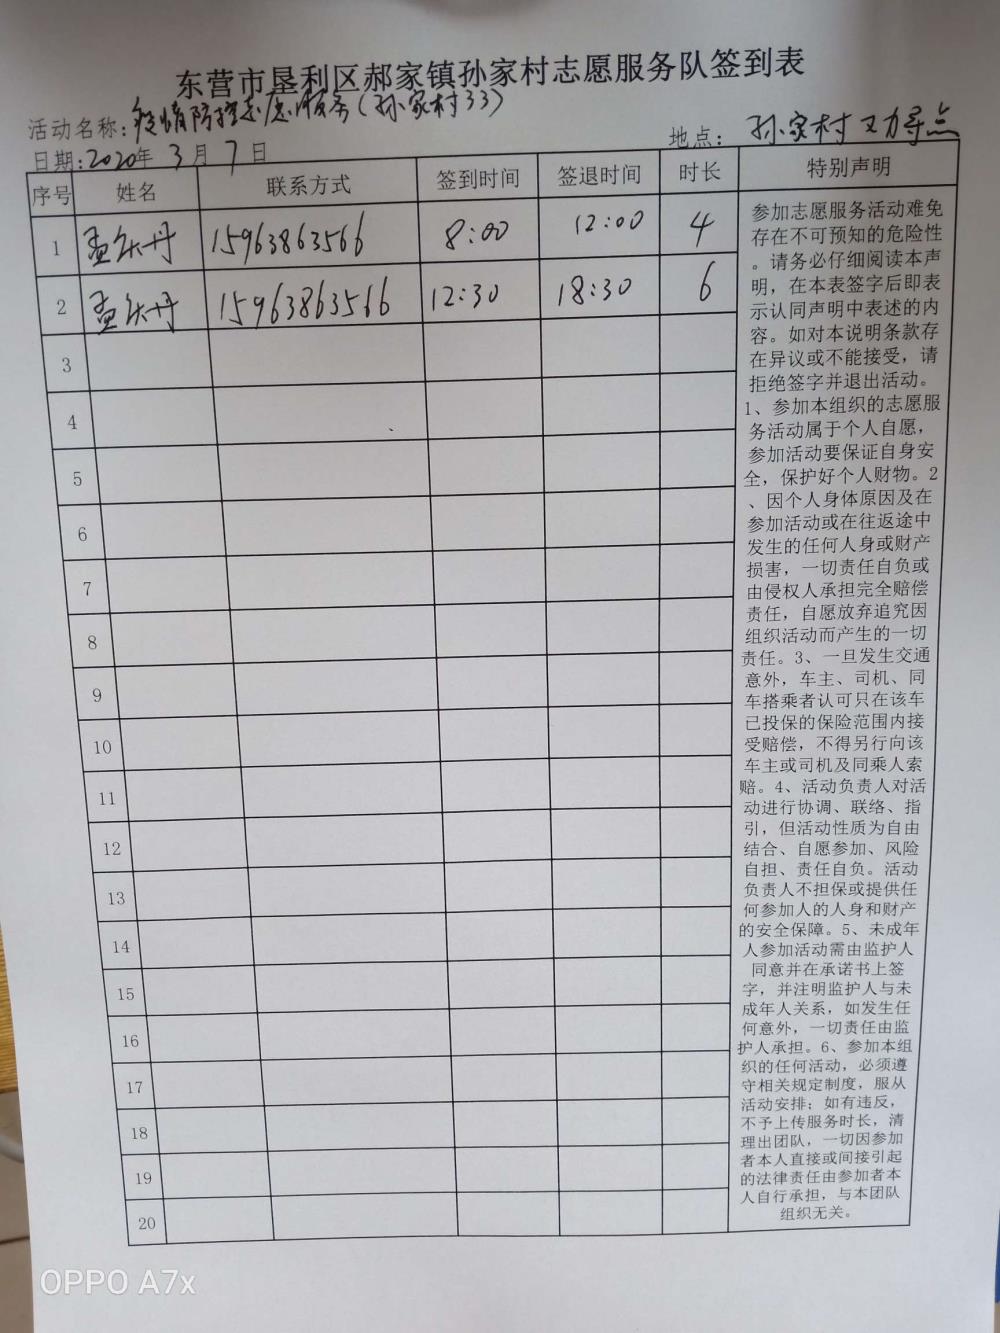 东营市垦利区郝家镇孙家村志愿服务队签到表
活动名称：疫情防控志愿服务（孙家村33）
地点： 孙家村
日期：2020年 3月 7日
序号 姓名 联系方式 签到时间 签退时间 时长 特别声明
1 15963863566 8:00 12:00 4
2 15963863566 12:30 18:30 6
3
4
5
6
7
8
9
10
11
12
13
14
15
16
17
18
19
20
参加志愿服务活动难免
存在不可预知的危险性
。请务必仔细阅读本声
明，在本表签字后即表
示认同声明中表述的内
容。如对本说明条款存
在异议或不能接受，请
拒绝签字并退出活动。
1、参加本组织的志愿服
务活动属于个人自愿，
参加活动要保证自身安
全，保护好个人财物。2
、因个人身体原因及在
参加活动或在往返途中
发生的任何人身或财产
损害，一切责任自负或
由侵权人承担完全赔偿
责任，自愿放弃追究因
组织活动而产生的一切
责任。3、一旦发生交通
意外，车主、司机、同
车搭乘者认可只在该车
已投保的保险范围内接
受赔偿，不得另行向该
车主或司机及同乘人索
赔。4、活动负责人对活
动进行协调、联络、指
引，但活动性质为自由
结合、自愿参加、风险
自担、责任自负。活动
负责人不担保或提供任
何参加人的人身和财产
的安全保障。5、未成年
人参加活动需由监护人
同意并在承诺书上签
字，并注明监护人与未
成年人关系，如发生任
何意外，一切责任由监
护人承担。6、参加本组
织的任何活动，必须遵
守相关规定制度，服从
活动安排；如有违反，
不予上传服务时长，清
理出团队，一切因参加
者本人直接或间接引起
的法律责任由参加者本
人自行承担，与本团队
组织无关。
OPPO A7x